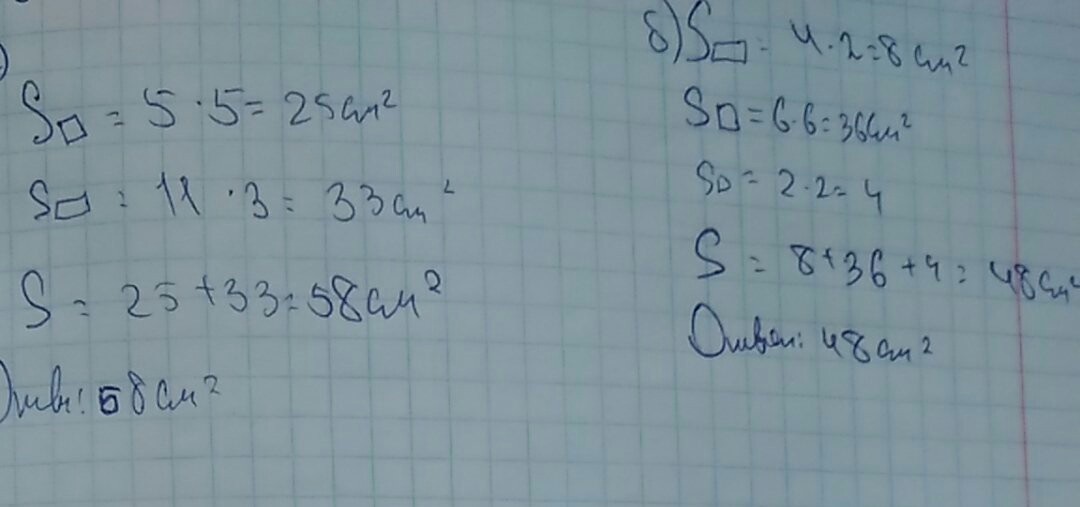 )
S▱ = 5 · 5 = 25 см²
S▭ = 11 · 3 = 33 см²
S = 25 + 33 = 58 см²
Ответ: 58 см²
б) S▭ = 4 · 2 = 8 см²
S□ = 6 · 6 = 36 см²
S□ = 2 · 2 = 4
S = 8 + 36 + 4 = 48 см²
Ответ: 48 см²